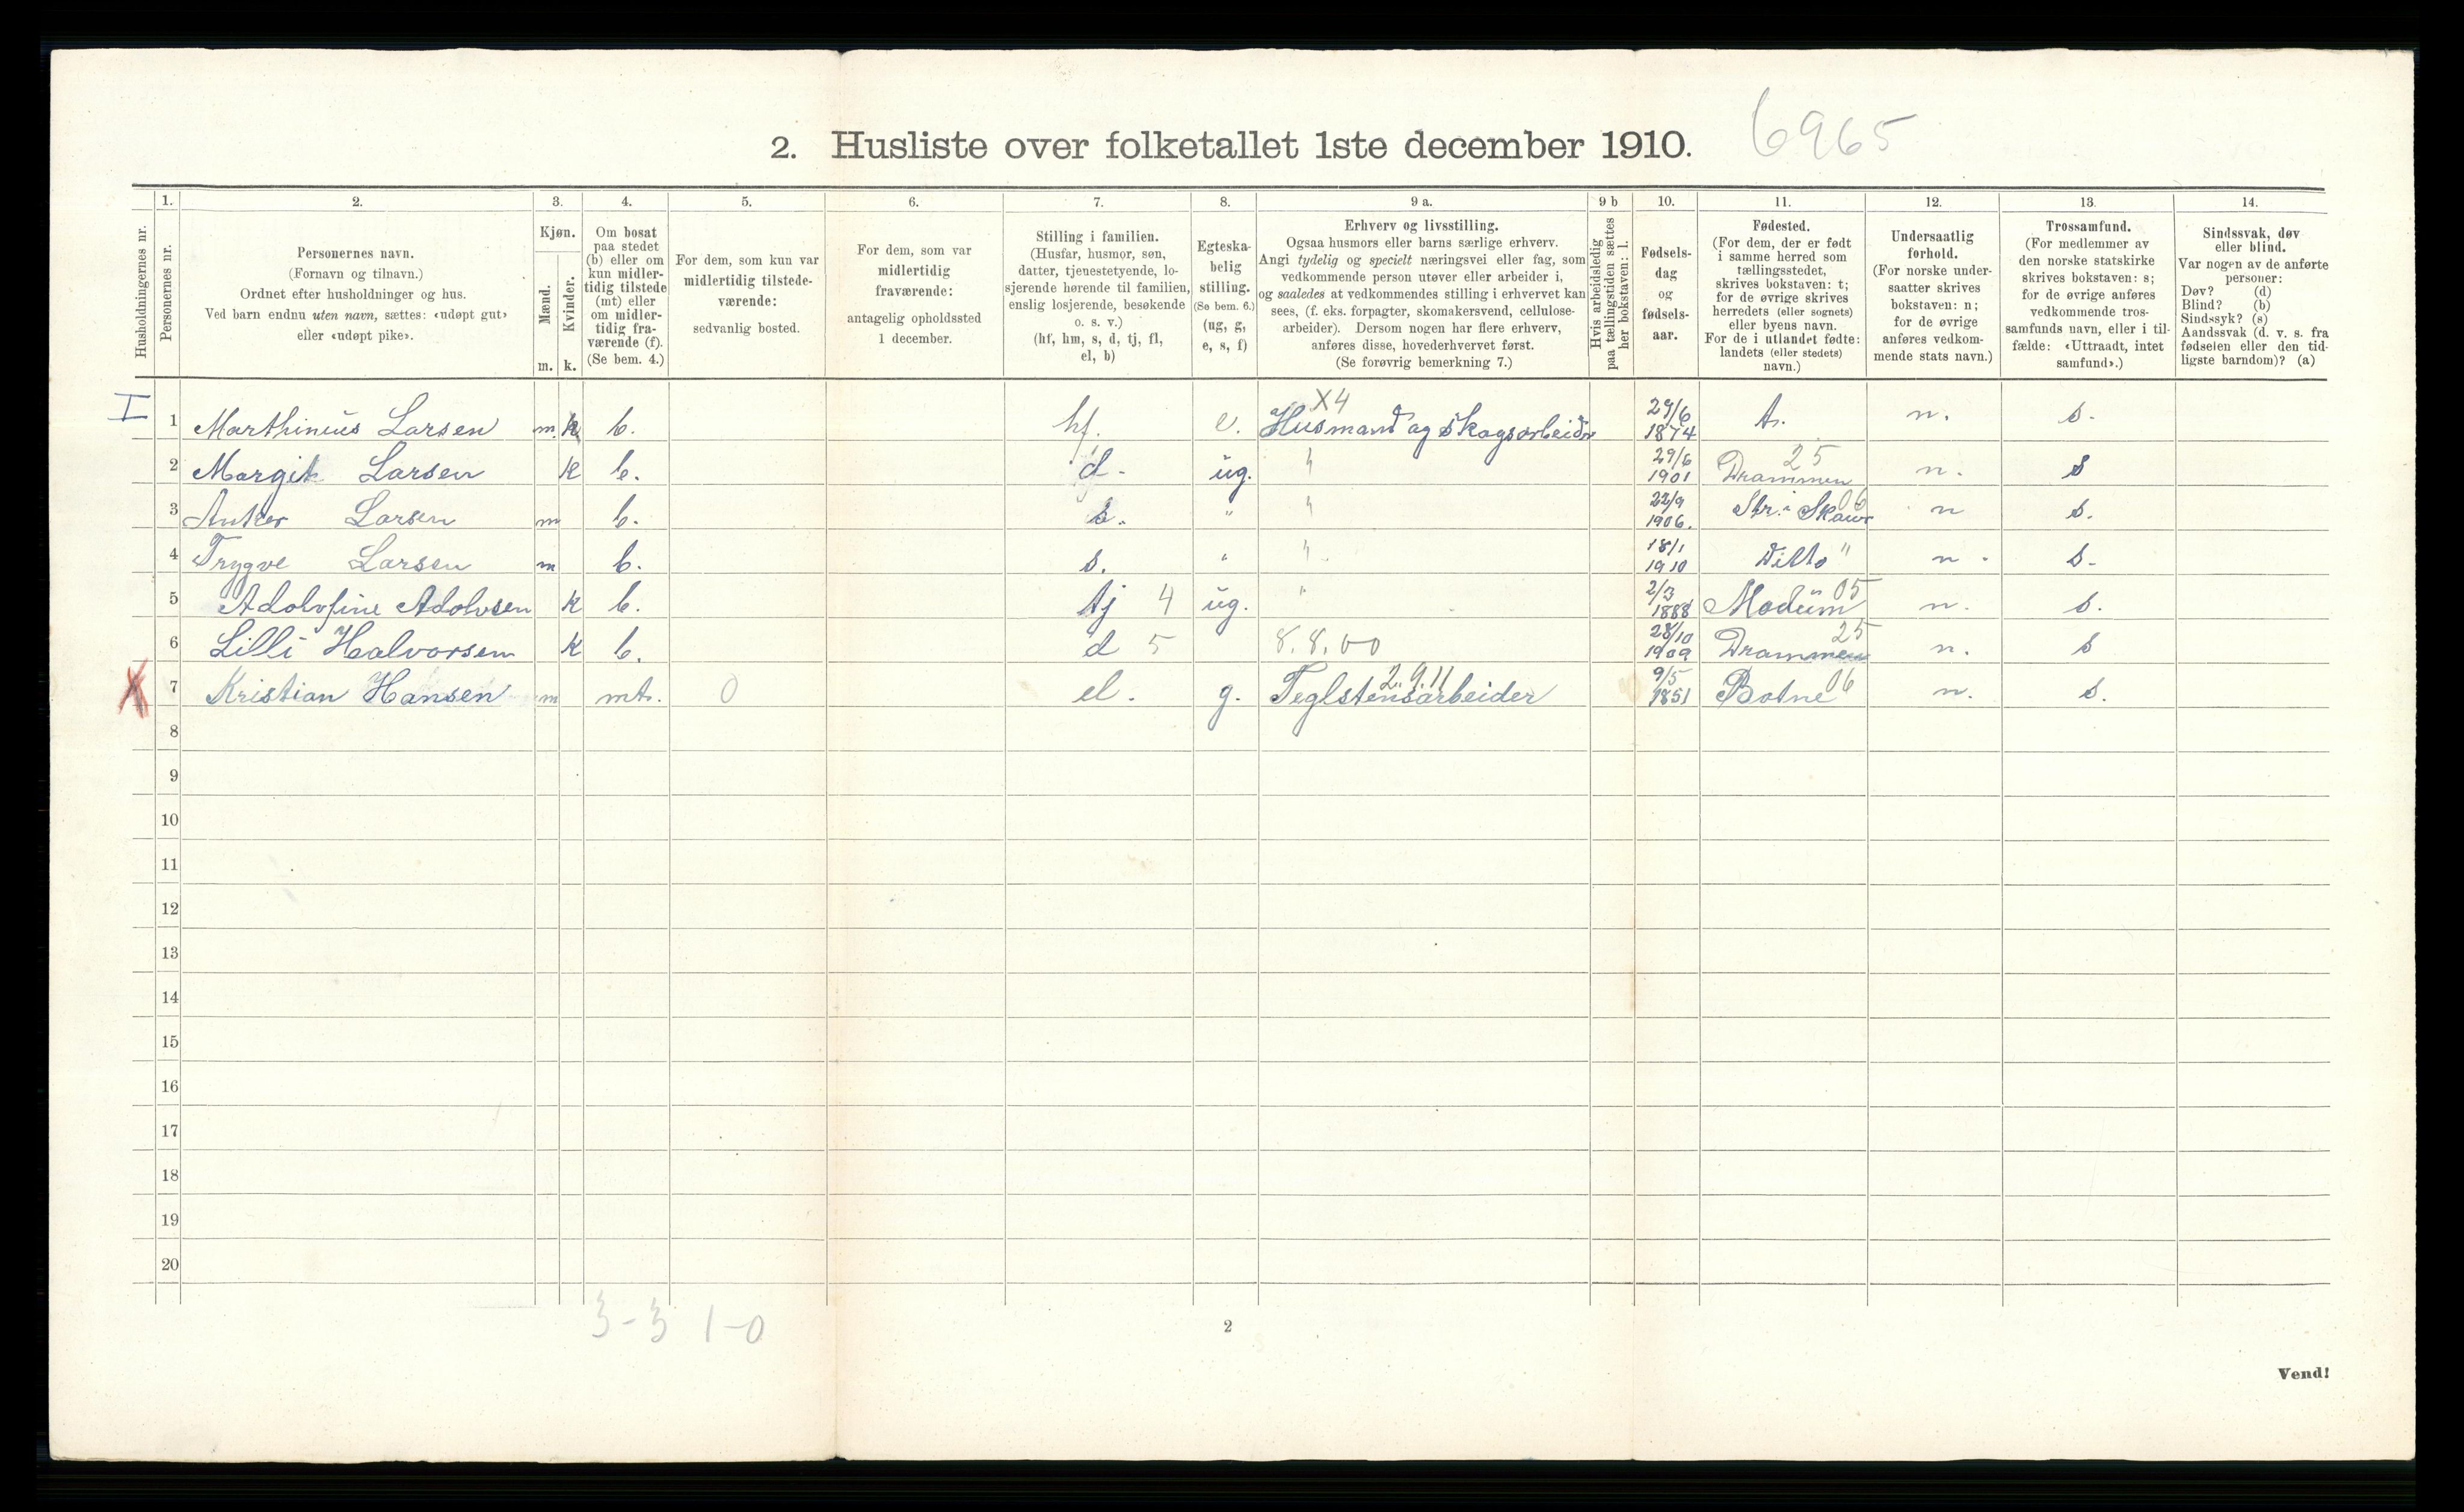 2. Husliste over folketallet 1ste december 1910. 6965
Husholdningernes nr.
1. Personernes nr.
2. Personernes navn.
(Fornavn og tilnavn.)
Ordnet efter husholdninger og hus.
Ved barn endnu uten navn, sættes: «udøpt gut»
eller «udøpt pike».
3. Kjøn.
Mænd. m.
Kvinder. k.
4. Om bosat
paa stedet
(b) eller om
kun midler-
tidig tilstede
(mt) eller
om midler-
tidig fra-
værende (f).
(Se bem. 4.)
5. For dem, som kun var
midlertidig tilstede-
værende:
sedvanlig bosted.
6. For dem, som var
midlertidig
fraværende:
antagelig opholdssted
1 december.
7. Stilling i familien.
(Husfar, husmor, søn,
datter, tjenestetyende, lo-
sjerende hørende til familien,
enslig losjerende, besøkende
o. s. v.)
(hf, hm, s, d, tj, fl,
el, b)
8. Egteska-
belig
stilling.
(Se bem. 6.)
(ug, g,
e, s, f)
9 a. Erhverv og livsstilling.
Ogsaa husmors eller barns særlige erhverv.
Angi tydelig og specielt næringsvei eller fag, som
vedkommende person utøver eller arbeider i,
og saaledes at vedkommendes stilling i erhvervet kan
sees, (f. eks. forpagter, skomakersvend, cellulose-
arbeider). Dersom nogen har flere erhverv,
anføres disse, hovederhvervet først.
(Se forøvrig bemerkning 7.)
9 b Hvis arbeidsledig
paa tællingstiden sættes
her bokstaven: l.
10. Fødsels-
dag
og
fødsels-
aar.
11. Fødested.
(For dem, der er født
i samme herred som
tællingsstedet,
skrives bokstaven: t;
for de øvrige skrives
herredets (eller sognets)
eller byens navn.
For de i utlandet fødte:
landets (eller stedets)
navn.)
12. Undersaatlig
forhold.
(For norske under-
saatter skrives
bokstaven: n;
for de øvrige
anføres vedkom-
mende stats navn.)
13. Trossamfund.
(For medlemmer av
den norske statskirke
skrives bokstaven: s;
for de øvrige anføres
vedkommende tros-
samfunds navn, eller i til-
fælde: «Uttraadt, intet
samfund».)
14. Sindssvak, døv
eller blind.
Var nogen av de anførte
personer:
Døv? (d)
Blind? (b)
Sindssyk? (s)
Aandssvak (d. v. s. fra
fødselen eller den tid-
ligste barndom)? (a)
X4
I 1 Marthinius Larsen m. k b. hf. e. Husmand og skogsarbeider 29/6 1874 t. n. s.
2 Margit Larsen k b. d. ug. " 29/6 1901 Drammen 25 n. s
3 Anker Larsen m b. s. " " 22/9 1906. Str. i Skaur 06 n s.
4 Trygve Larsen m b. s. " " 18/1 1910 Ditto " n. s.
5 Adolvfine Adolvsen k b. tj 4 ug. " 2/3 1888 Modum 05 n. s.
6 Lilli Halvorsen k b. d 5 8.8.00 28/10 1909 Drammen 25 n. s
X 7 Kristian Hansen m mt. 0 el. g. Teglstensarbeider 2.9.11 9/5 1851 Botne 06 n. s.
8
9
10
11
12
13
14
15
16
17
18
19
20
3-3 1-0
2
Vend!